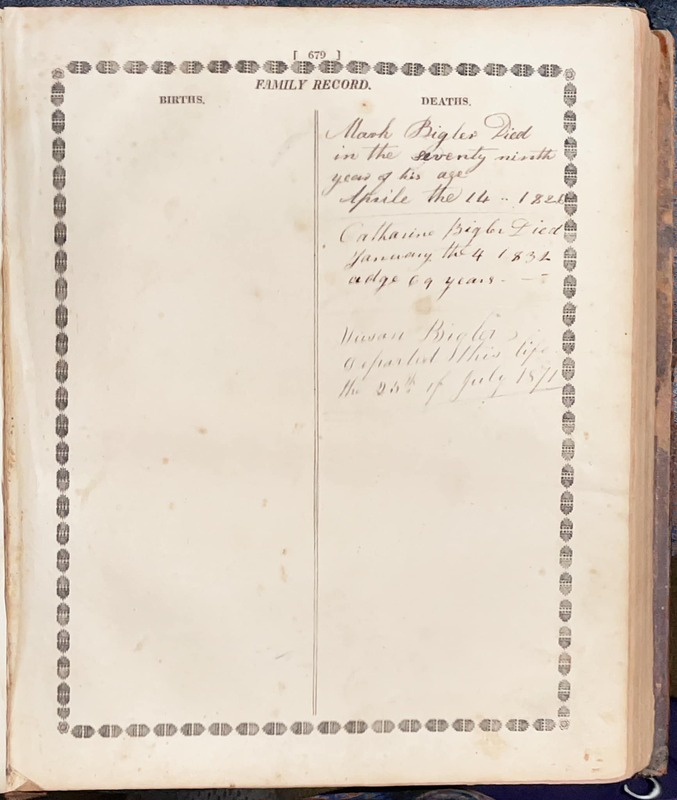 [ 679 ]
FAMILY RECORD.
BIRTHS.
DEATHS.
Mark Bigler Died
in the seventy ninth
year of his age
Aprile the 14 -- 
Catharine Bigler Died
January the 4 1832
adge 69 years -
Susan Bigler
departed this life
the 25th of July 1871